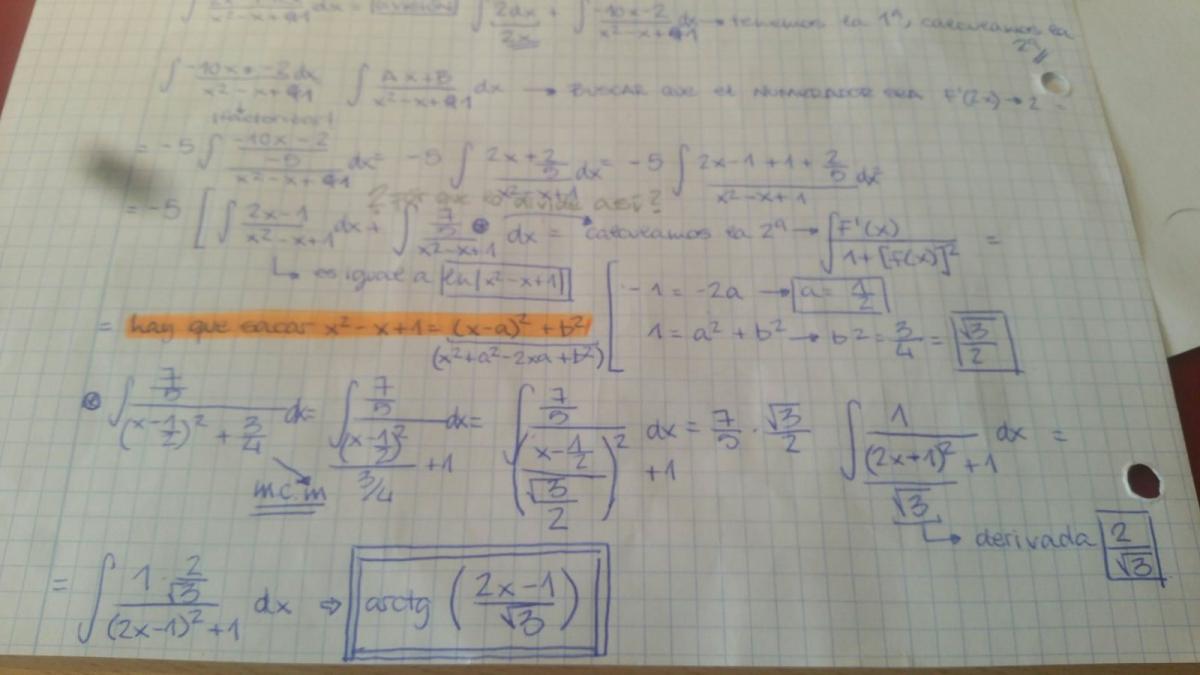 dx = ∫ 2dx/2x + ∫ -10x-2/x²-x+1 dx → tenemos la 1ª, calculamos la 2ª
∫ -10x-2 dx/x²-x+1 ∫ Ax+B/x²-x+1 dx → buscar que el numerador sea F'(2x) → 2
= -5 ∫ (-10x-2/-5)/x²-x+1 dx = -5 ∫ (2x+2/5)/x²-x+1 dx = -5 ∫ (2x-1+1+2/5)/x²-x+1 dx
¿Por qué se divide así?
= -5 [ ∫ 2x-1/x²-x+1 dx + ∫ (7/5)/x²-x+1 dx = calculamos la 2ª → ∫ F'(x)/1+[f(x)]² =
↳ es igual a ln|x²-x+1|
-1 = -2a → a = 1/2
= hay que sacar x²-x+1 = (x-a)² + b²
(x²+a²-2xa+b²)
1 = a² + b² → b² = 3/4 = √3/2
∫ (7/5)/(x-1/2)² + 3/4 dx = ∫ (7/5)/((x-1/2)²/(3/4) + 1) dx = ∫ (7/5)/(((x-1/2)/(√3/2))² + 1) dx = 7/5 · √3/2 ∫ 1/((2x+1)²/√3 + 1) dx =
m.c.m
↳ derivada 2/√3
= ∫ (1 · 2/√3)/((2x-1)² + 1) dx ⇒ arctg (2x-1/√3)